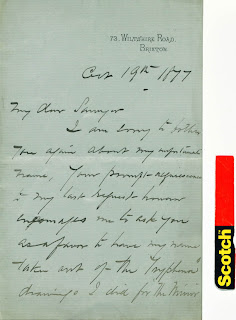 73, WILTSHIRE ROAD,
BRIXTON
Oct 19th 1877
My dear Sawyer
I am sorry to bother
you again about my unfortunate
name, Your prompt
to my last request however
encourages me to ask you
as a favor to have my name
taken out of the
drawings I did for the Mirror
Scotch